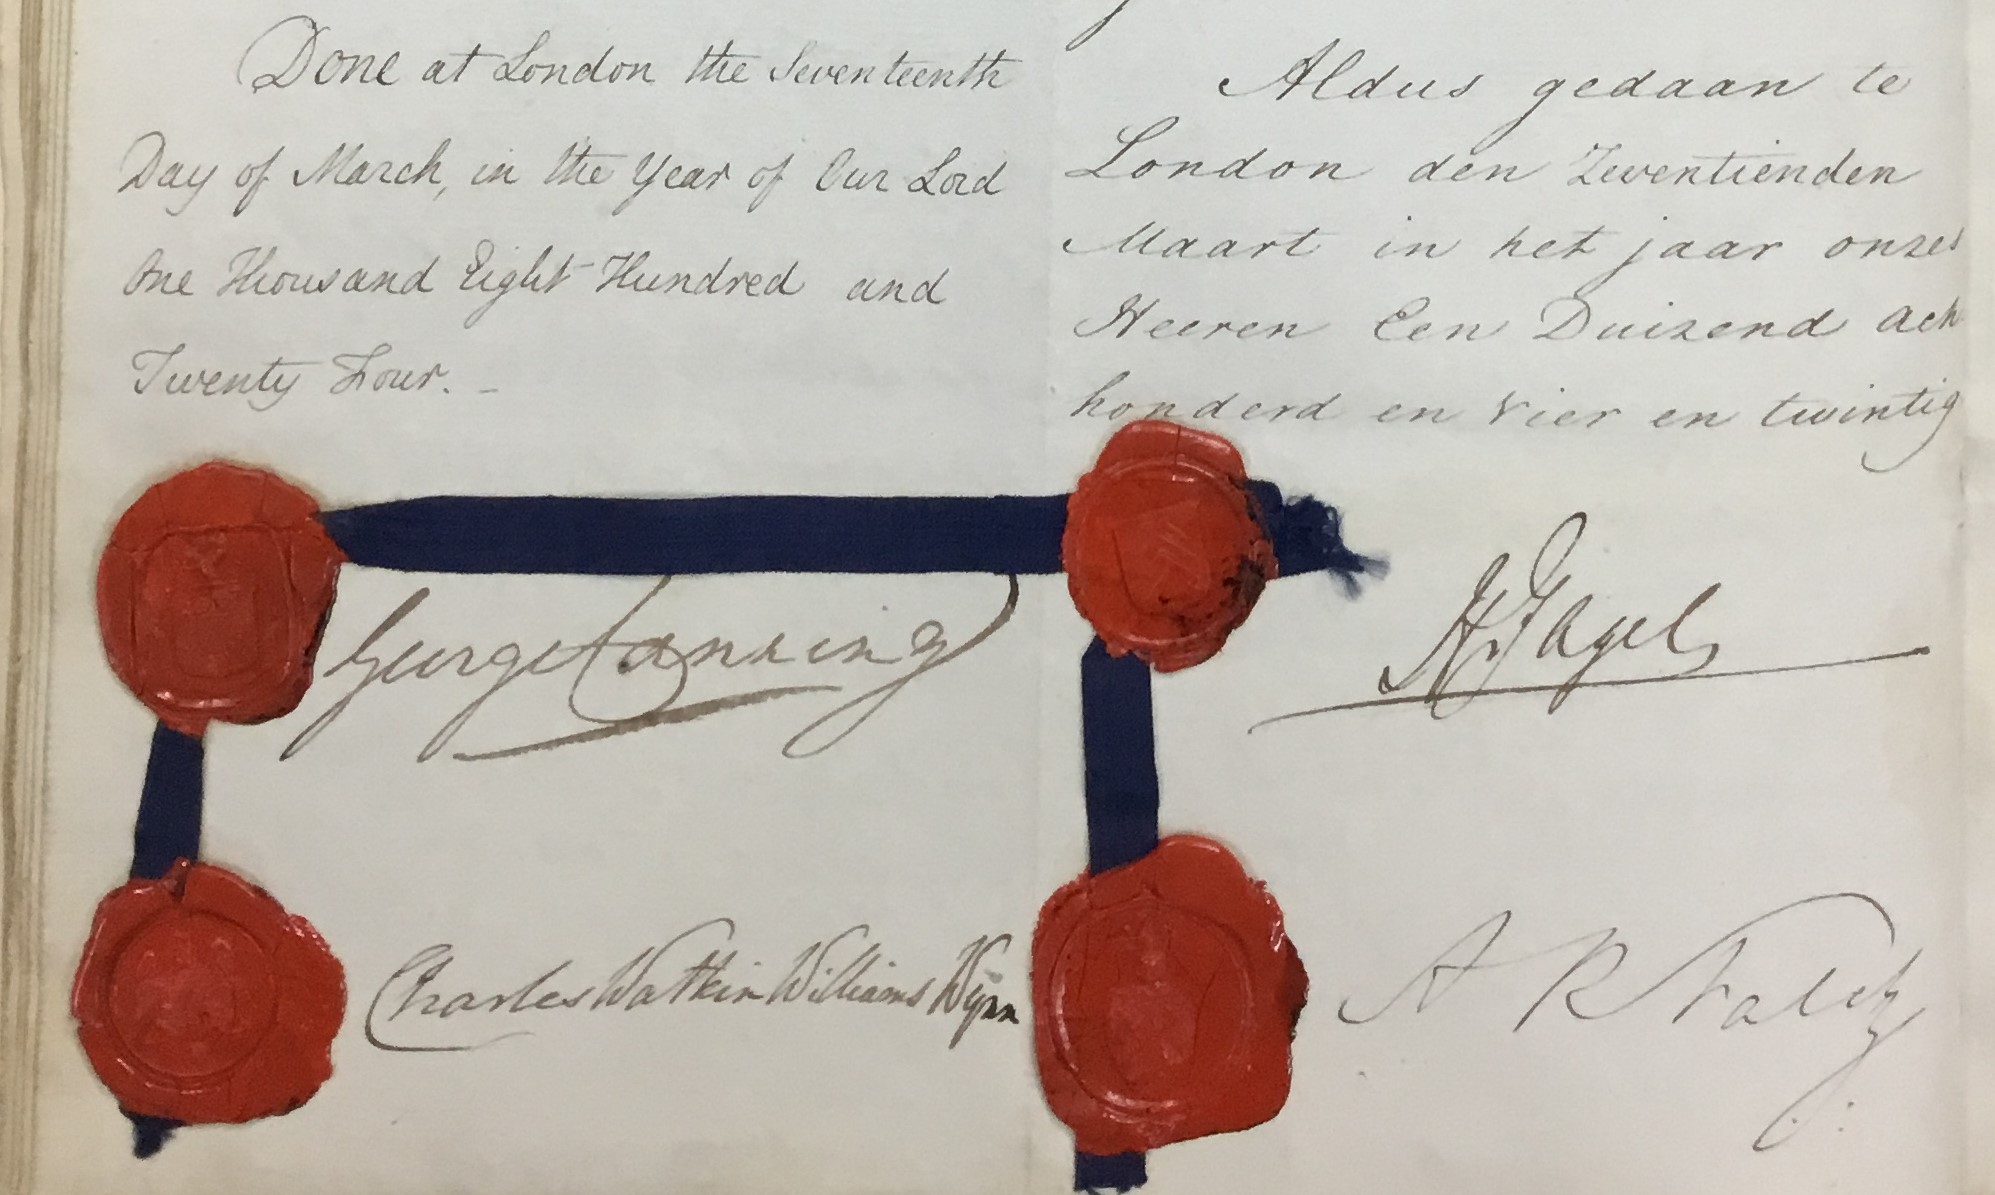 Done at London the Seventeenth
Day of March, in the Year of Our Lord
One Thousand Eight Hundred and
Twenty Four. -
George Canning
Charles Watkin Williams Wynn
Aldus gedaan te
London den Zeventienden
Maart in het jaar onzes
Heeren Een Duizend ach
honderd en vier en twintig
H Fagel
A R Falck